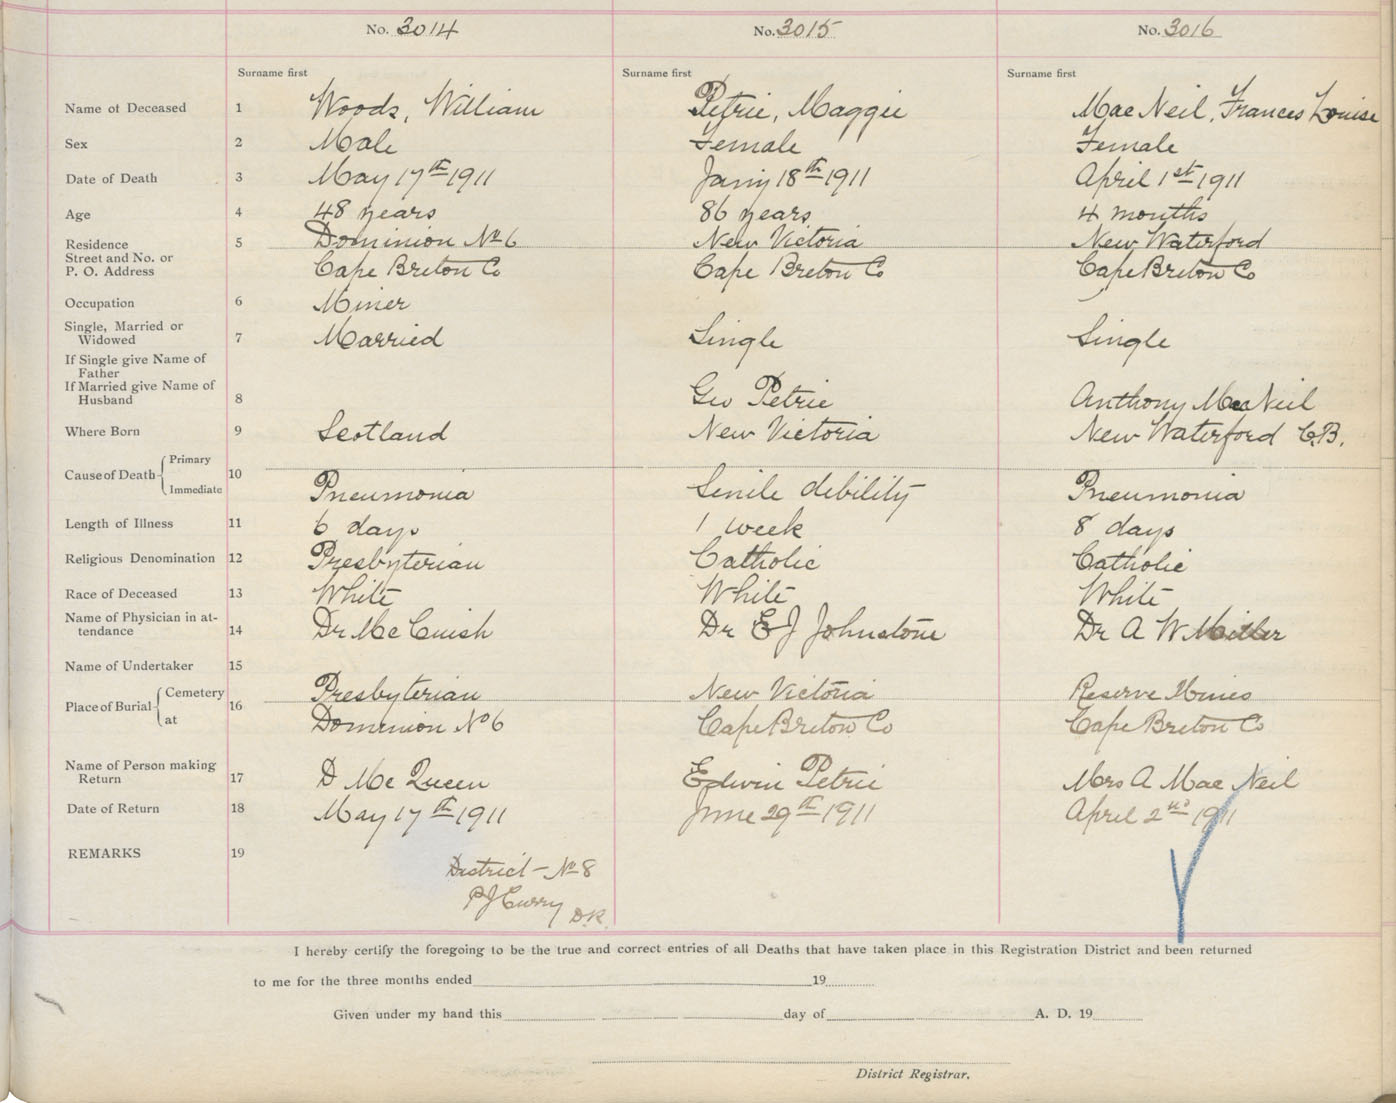 No. 3014 No. 3015 No. 3016
Surname first Surname first Surname first
Name of Deceased 1 Woods, William Petrie, Maggie Mac Neil, Frances Louise
Sex 2 Male Female Female
Date of Death 3 May 17th 1911 Jany 18th 1911 April 1st 1911
Age 4 48 years 86 years 4 months
Residence 5 Dominion No 6 New Victoria New Waterford
Street and No. or
P. O. Address Cape Breton Co Cape Breton Co Cape Breton Co
Occupation 6 Miner
Single, Married or
Widowed 7 Married Single Single
If Single give Name of
Father
If Married give Name of
Husband 8 Geo Petrie Anthony MacNeil
Where Born 9 Scotland New Victoria New Waterford C.B.
Cause of Death Primary 10
Immediate Pneumonia Senile debility Pneumonia
Length of Illness 11 6 days 1 week 8 days
Religious Denomination 12 Presbyterian Catholic Catholic
Race of Deceased 13 White White White
Name of Physician in at-
tendance 14 Dr McCuish Dr E J Johnstone Dr A W Miller
Name of Undertaker 15
Place of Burial Cemetery 16 Presbyterian New Victoria Reserve Mines
at Dominion No 6 Cape Breton Co Cape Breton Co
Name of Person making
Return 17 D Mc Queen Edwin Petrie Mrs A Mac Neil
Date of Return 18 May 17th 1911 June 29th 1911 April 2nd 1911
REMARKS 19
District - No 8
P J Curry D.R.
I hereby certify the foregoing to be the true and correct entries of all Deaths that have taken place in this Registration District and been returned
to me for the three months ended 19
Given under my hand this day of A. D. 19
District Registrar.